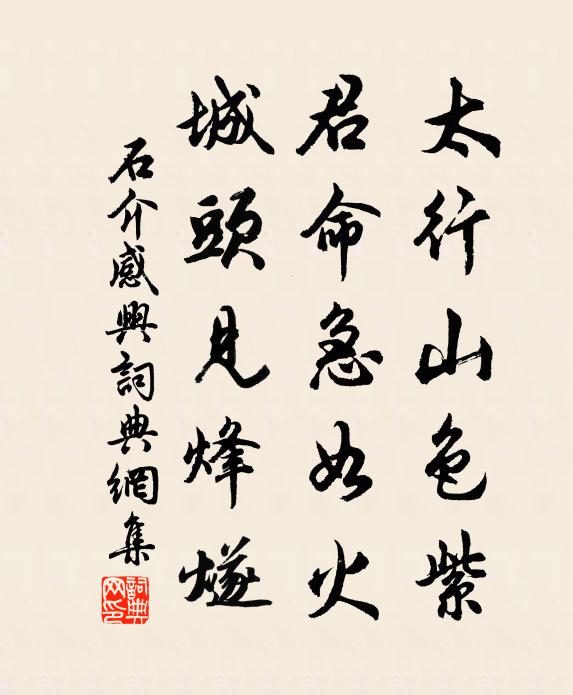 太行山色紫
君命急如火
城頭見烽燧
石介感興詞典網集
詞典網印